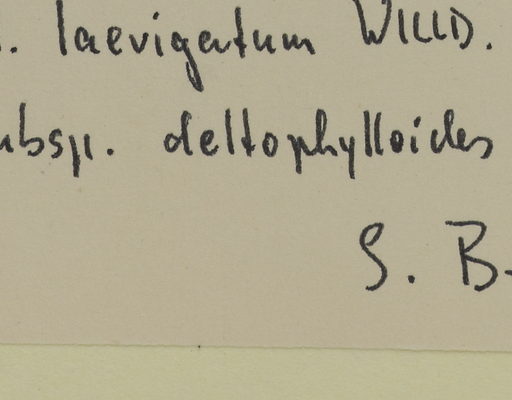 . laevigatum WILLD.
ubsp. deltophylloides
S. B.